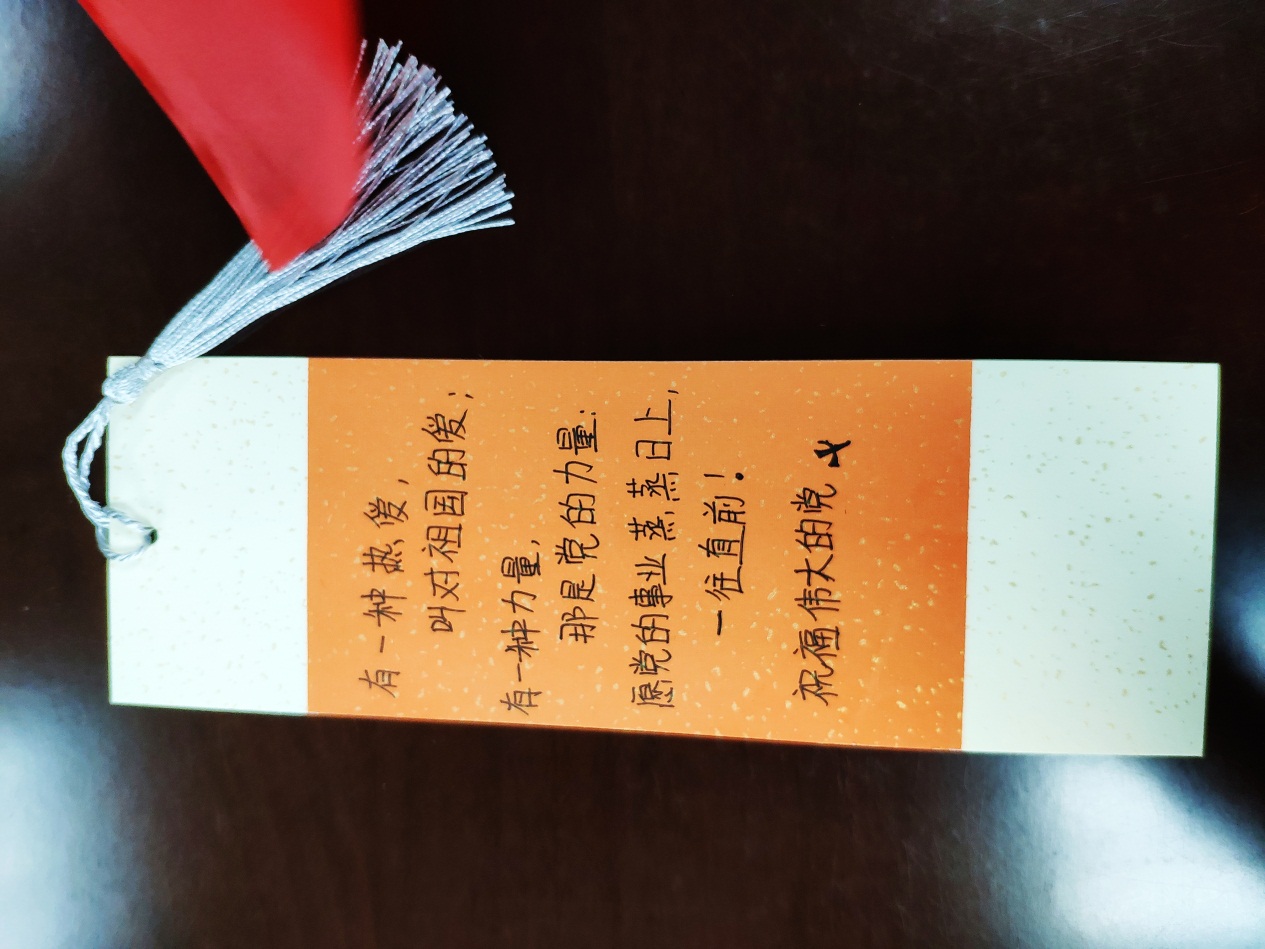 有一种热爱，
叫对祖国的爱；
有一种力量，
那是党的力量；
愿党的事业蒸蒸日上，
一往有前！
祝福伟大的党